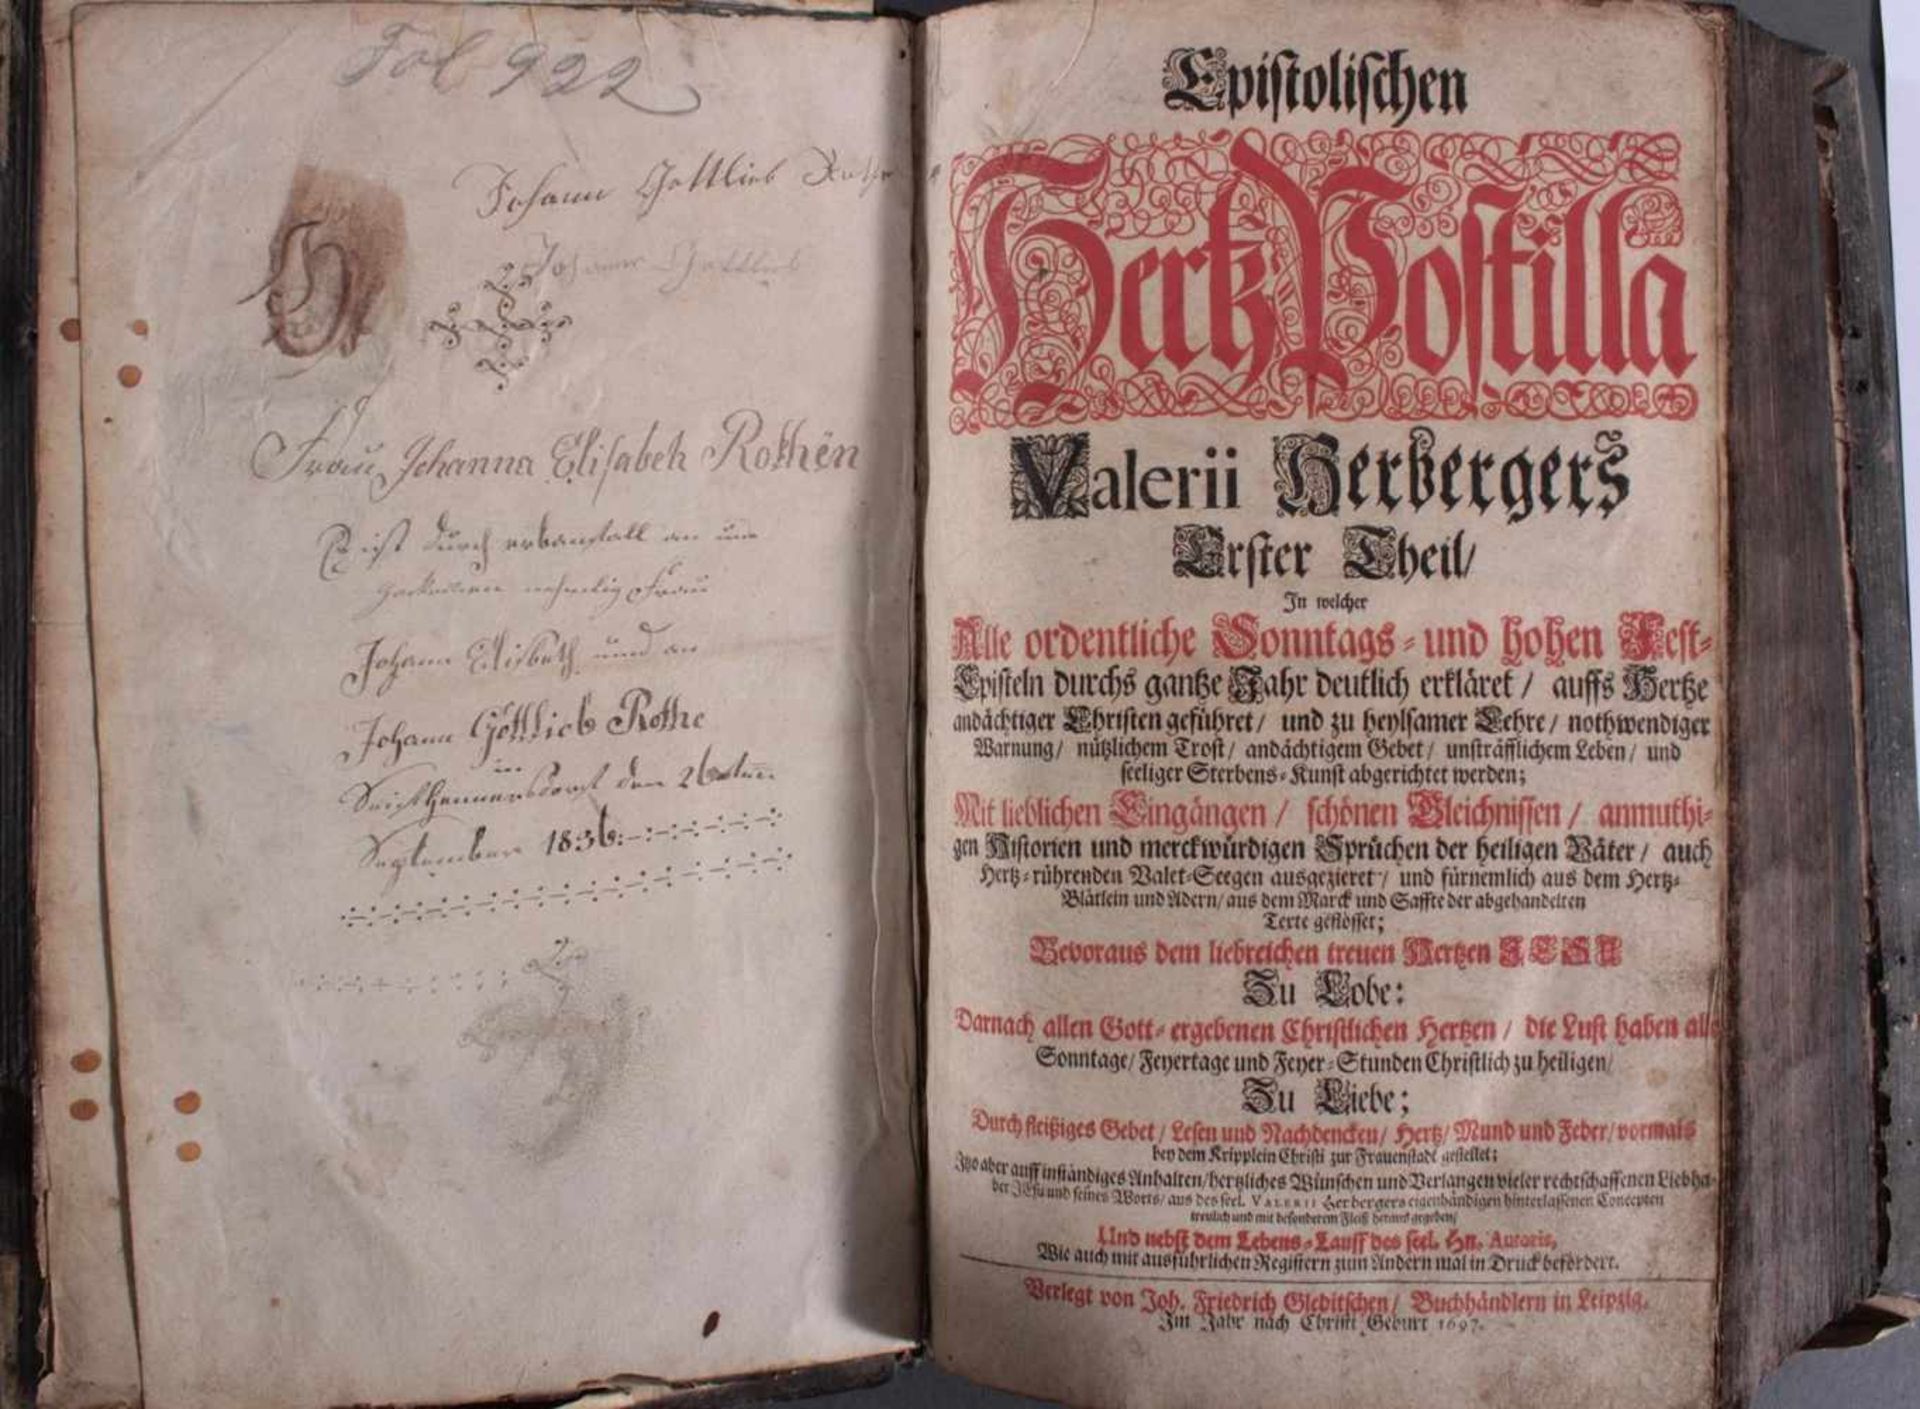 Fol 922
Johann Gottlieb Rothe
Johann Gottlieb
Frau Johanna Elisabeh Rothën
ist durch erbanfall an
Frau
Johann Elisbeth und an
Johann Gottlieb Rothe
in
Seifthennersdorf den 26
September 1836
Epistolischen
Hertz Postilla
Valerii Herbergers
Erster Theil/
In welcher
Alle ordentliche Sonntags- und hohen Fest-
Episteln durchs gantze Jahr deutlich erkläret / auffs Hertze
andächtiger Christen geführet/ und zu heylsamer Lehre/ nothwendiger
Warnung/ nützlichem Trost/ andächtigem Gebet/ unsträfflichem Leben/ und
seeliger Sterbens-Kunst abgerichtet werden;
Mit lieblichen Eingängen / schönen Gleichnissen / anmuthi-
gen Historien und merckwürdigen Sprüchen der heiligen Väter/ auch
Hertz-rührenden Valet-Seegen ausgezieret/ und fürnemlich aus dem Hertz-
Blätlein und Adern/ aus dem Marck und Saffte der abgehandelten
Texte geflösset;
Bevoraus dem liebreichen treuen Hertzen JESU
Zu Lobe:
Darnach allen Gott-ergebenen Christlichen Hertzen/ die Lust haben alle
Sonntage/ Feyertage und Feyer-Stunden Christlich zu heiligen/
Zu Liebe;
Durch fleißiges Gebet/ Lesen und Nachdencken/ Hertz/ Mund und Feder/ vormals
bey dem Kripplein Christi zur Frauenstadt gestellet;
Itzo aber auff inständiges Anhalten/ hertzliches Wünschen und Verlangen vieler rechtschaffenen Liebha-
ber JEsu und seines Worts/ aus des seel. VALERII Herbergers eigenhändigen hinterlassenen Concepten
treulich und mit besonderem Fleiß heraus gegeben/
Und nebst dem Lebens-Lauff des seel. Hn. Autoris,
Wie auch mit ausführlichen Registern zum Andern mal in Druck befördert.
Verlegt von Joh. Friedrich Gleditschen/ Buchhändlern in Leipzig.
Im Jahr nach Christi Geburt 1697.